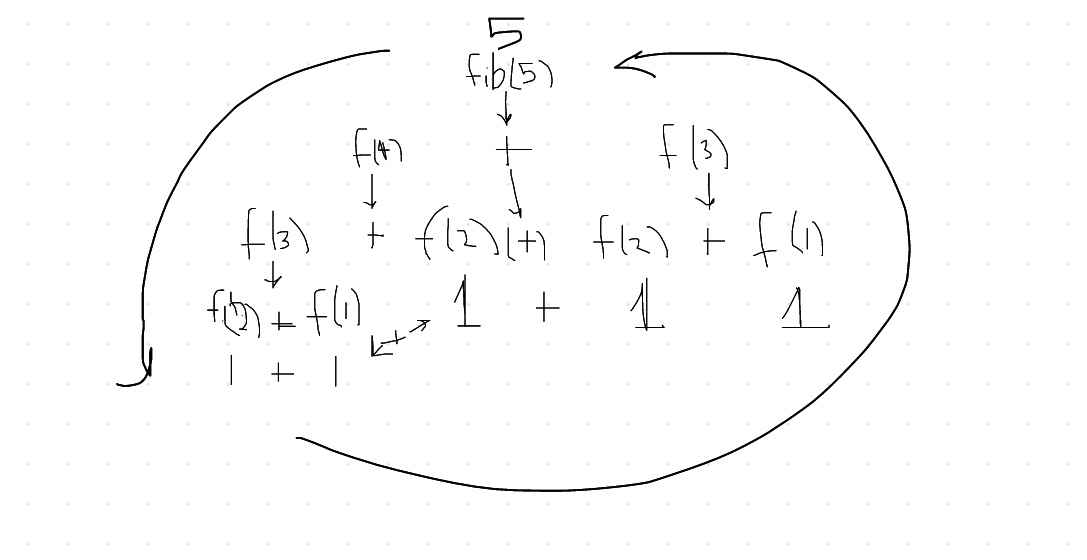 5
fib(5)
f(4) + f(3)
f(3) + f(2) (+) f(2) + f(1)
f(2) + f(1) 1 + 1 1
+
1 + 1